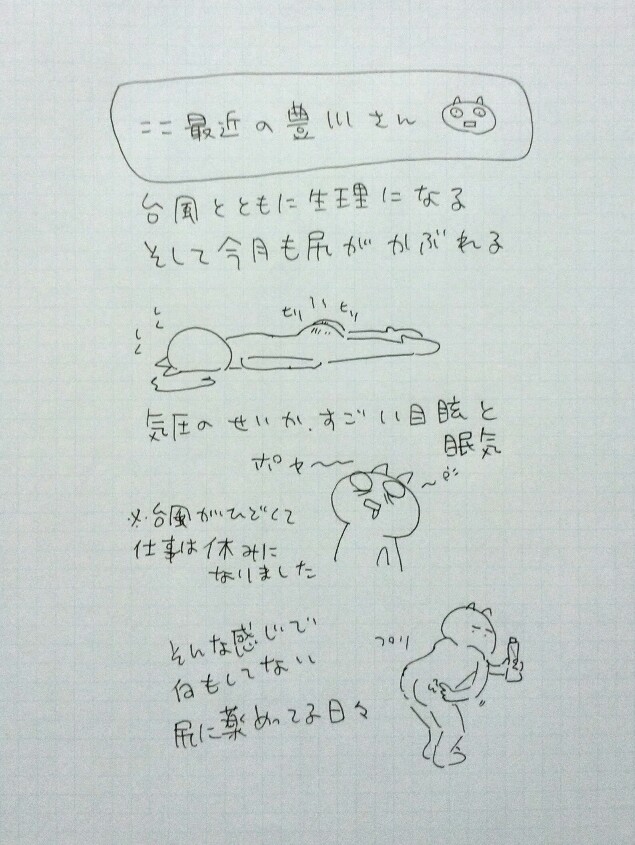 ここ最近の豊川さん
台風とともに生理になる
そして今月も尻がかぶれる
ヒリ ヒリ ヒリ
気圧のせいか、すごい目眩と
眠気
ポヤ〜〜
※台風がひどくて
仕事は休みに
なりました
そんな感じで
何もしてない
尻に薬ぬってる日々